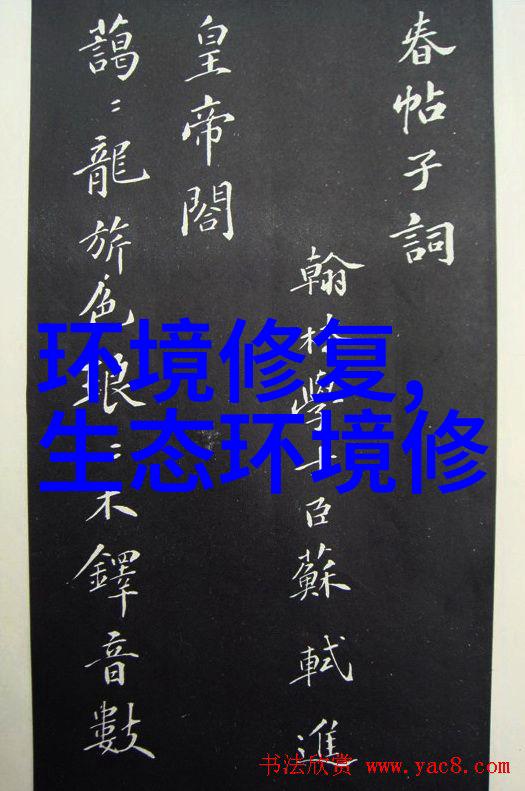 春帖子詞
翰林學士臣蘇軾進
皇帝閣
藹〻龍旂色琅〻木鐸音數
环境修复,
生态环境修
书法欣赏 www.yac8.com